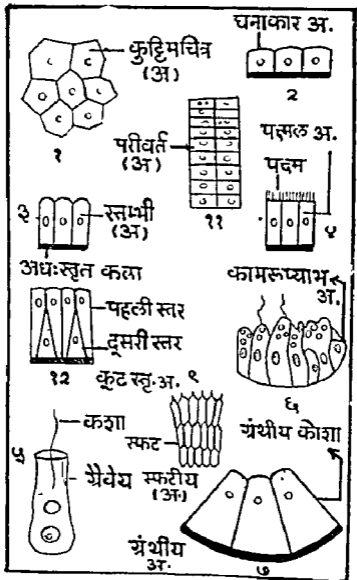 कुट्टिमचित्र
(अ)
१
घनाकार अ.
२
परिवर्त
(अ)
११
पक्ष्मल अ.
पक्ष्म
४
३
स्तम्भी
(अ)
अधःस्तृत कला
पहली स्तर
दूसरी स्तर
१२
कूट स्तृ. अ.
९
कामरूप्याभ
अ.
६
कशा
५
ग्रैवेय
स्फट
स्फटीय
(अ)
ग्रंथीय कोशा
ग्रंथीय
अ.
७